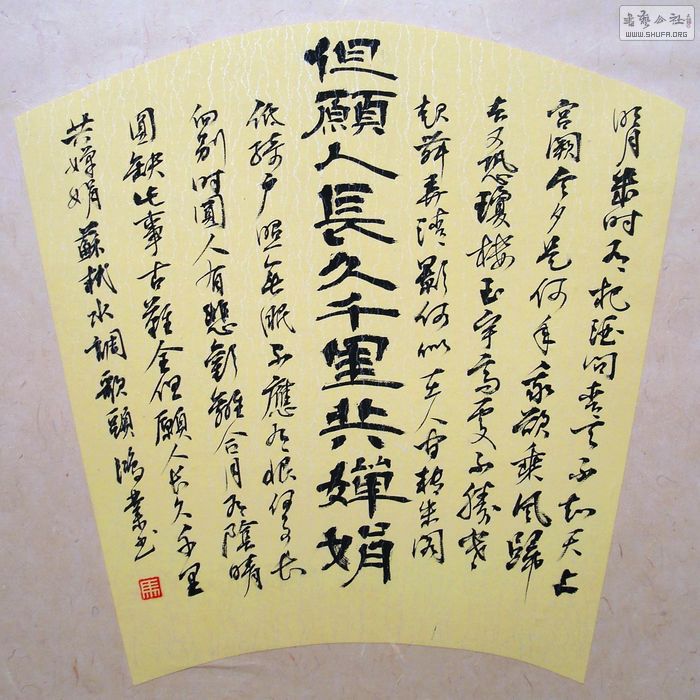 明月幾时有把酒問青天不知天上
宫闕今夕是何年我欲乘風歸
去又恐瓊楼玉宇高处不勝寒
起舞弄清影何似在人间转朱阁
但願人長久千里共嬋娟
低綺户照無眠不應有恨何事长
向别时圓人有悲歡離合月有陰晴
圓缺此事古難全但願人长久千里
共嬋娟蘇軾水調歌頭鴻業书
馬
書藝公社
WWW.SHUFA.ORG